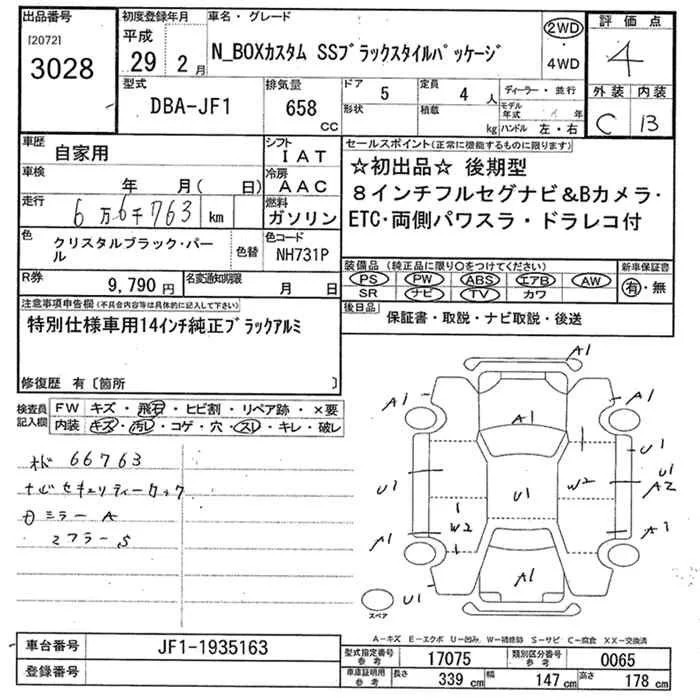 出品番号 初度登録年月 車名・グレード 評価点
[2072] 平成
3028 29 2月 N_BOXカスタム SSブラックスタイルパッケージ 2WD ・ 4WD 4
型式 排気量 ドア 定員 ディーラー・並行 外装 内装
DBA-JF1 658 CC 5 4 人 C B
形状 積載 kg モデル年式 年 ハンドル 左・右
車歴 自家用 シフト IAT セールスポイント(正常に機能するものに限ります)
車検 年 月( 日) 冷房 AAC ☆初出品☆ 後期型
走行 6万6千763 km 燃料 ガソリン 8インチフルセグナビ&Bカメラ・
ETC・両側パワスラ・ドラレコ付
色 クリスタルブラック・パール 色替 色コード NH731P
装備品 (純正品に限り○をつけてください) 新車保証書
R券 9,790円 名変通知期限 月 日 PS PW ABS エアB AW 有・無
SR ナビ TV カワ
注意事項申告欄(不具合内容は具体的に記入して下さい) 後日品 保証書・取説・ナビ取説・後送
特別仕様車用14インチ純正ブラックアルミ
修復歴 有〔箇所 〕
検査員記入欄 FW キズ・飛石・ヒビ割・リペア跡・×要
内装 キズ・汚レ・コゲ・穴・スレ・キレ・破レ
オド 66763
ナビセキュリティーロック
ミラー A
マフラー S
A1
A1 A1 A1
U1
U1 U1 W2 U1 A2
W2
A1 A3
A1
U1
スペア
A-キズ E-エクボ U-凹み W-補修跡 S-サビ C-腐食 XX-交換済
車台番号 JF1-1935163 型式指定番号 参考 17075 類別区分番号 参考 0065
登録番号 車庫証明用 参考 長さ 339 cm 幅 147 cm 高さ 178 cm